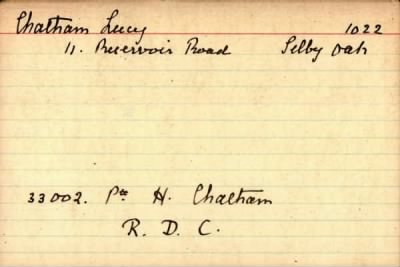 Chatham Lucy 1022
11. Reservoir Road Selby Oak
33002. Pte H. Chatham
R. D. C.